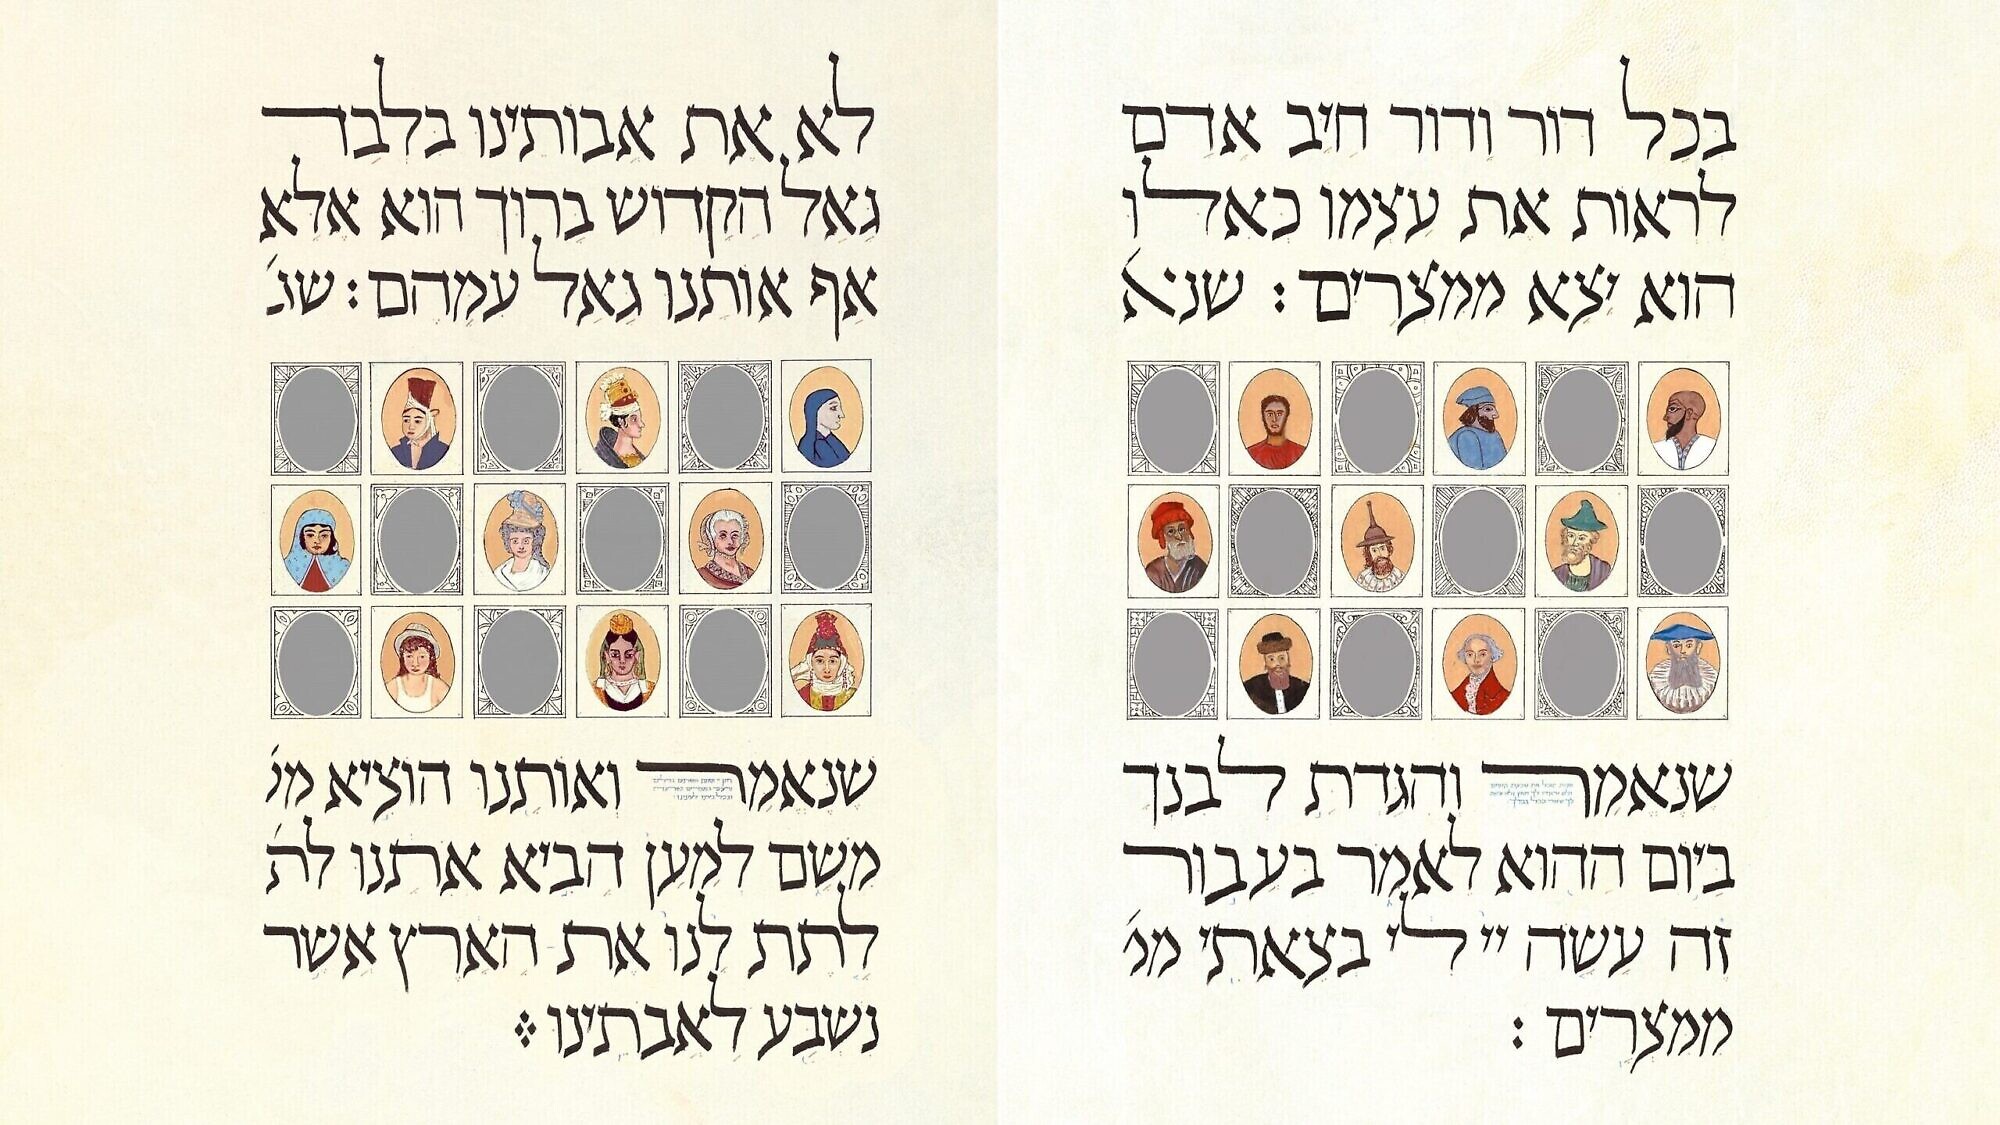 בכל דור ודור חיב אדם
לראות את עצמו כאלו
הוא יצא ממצרים : שנא
שנאמר והגדת לבנך
ביום ההוא לאמר בעבור
זה עשה יי לי בצאתי ממ
ממצרים :
לא את אבותינו בלבד
גאל הקדוש ברוך הוא אלא
אף אותנו גאל עמהם : שנ
שנאמר ואותנו הוציא מ
משם למען הביא אתנו לת
לתת לנו את הארץ אשר
נשבע לאבתינו